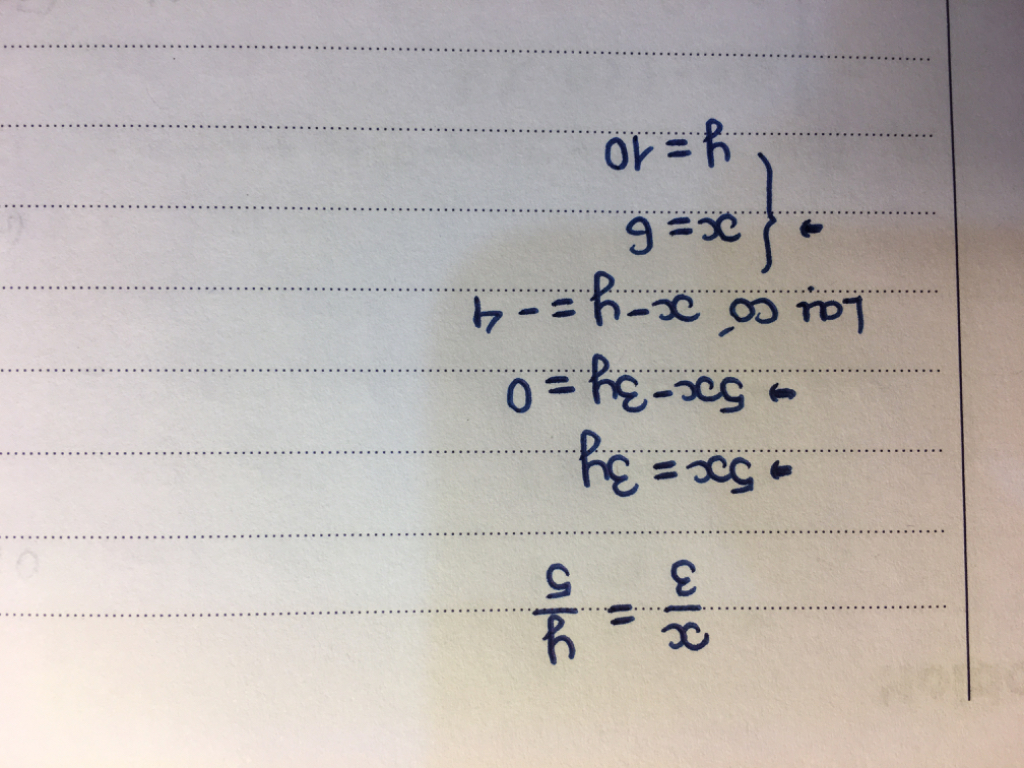 x/3 = y/5
→ 5x = 3y
→ 5x - 3y = 0
Lại có x - y = -4
→ { x = 6
y = 10